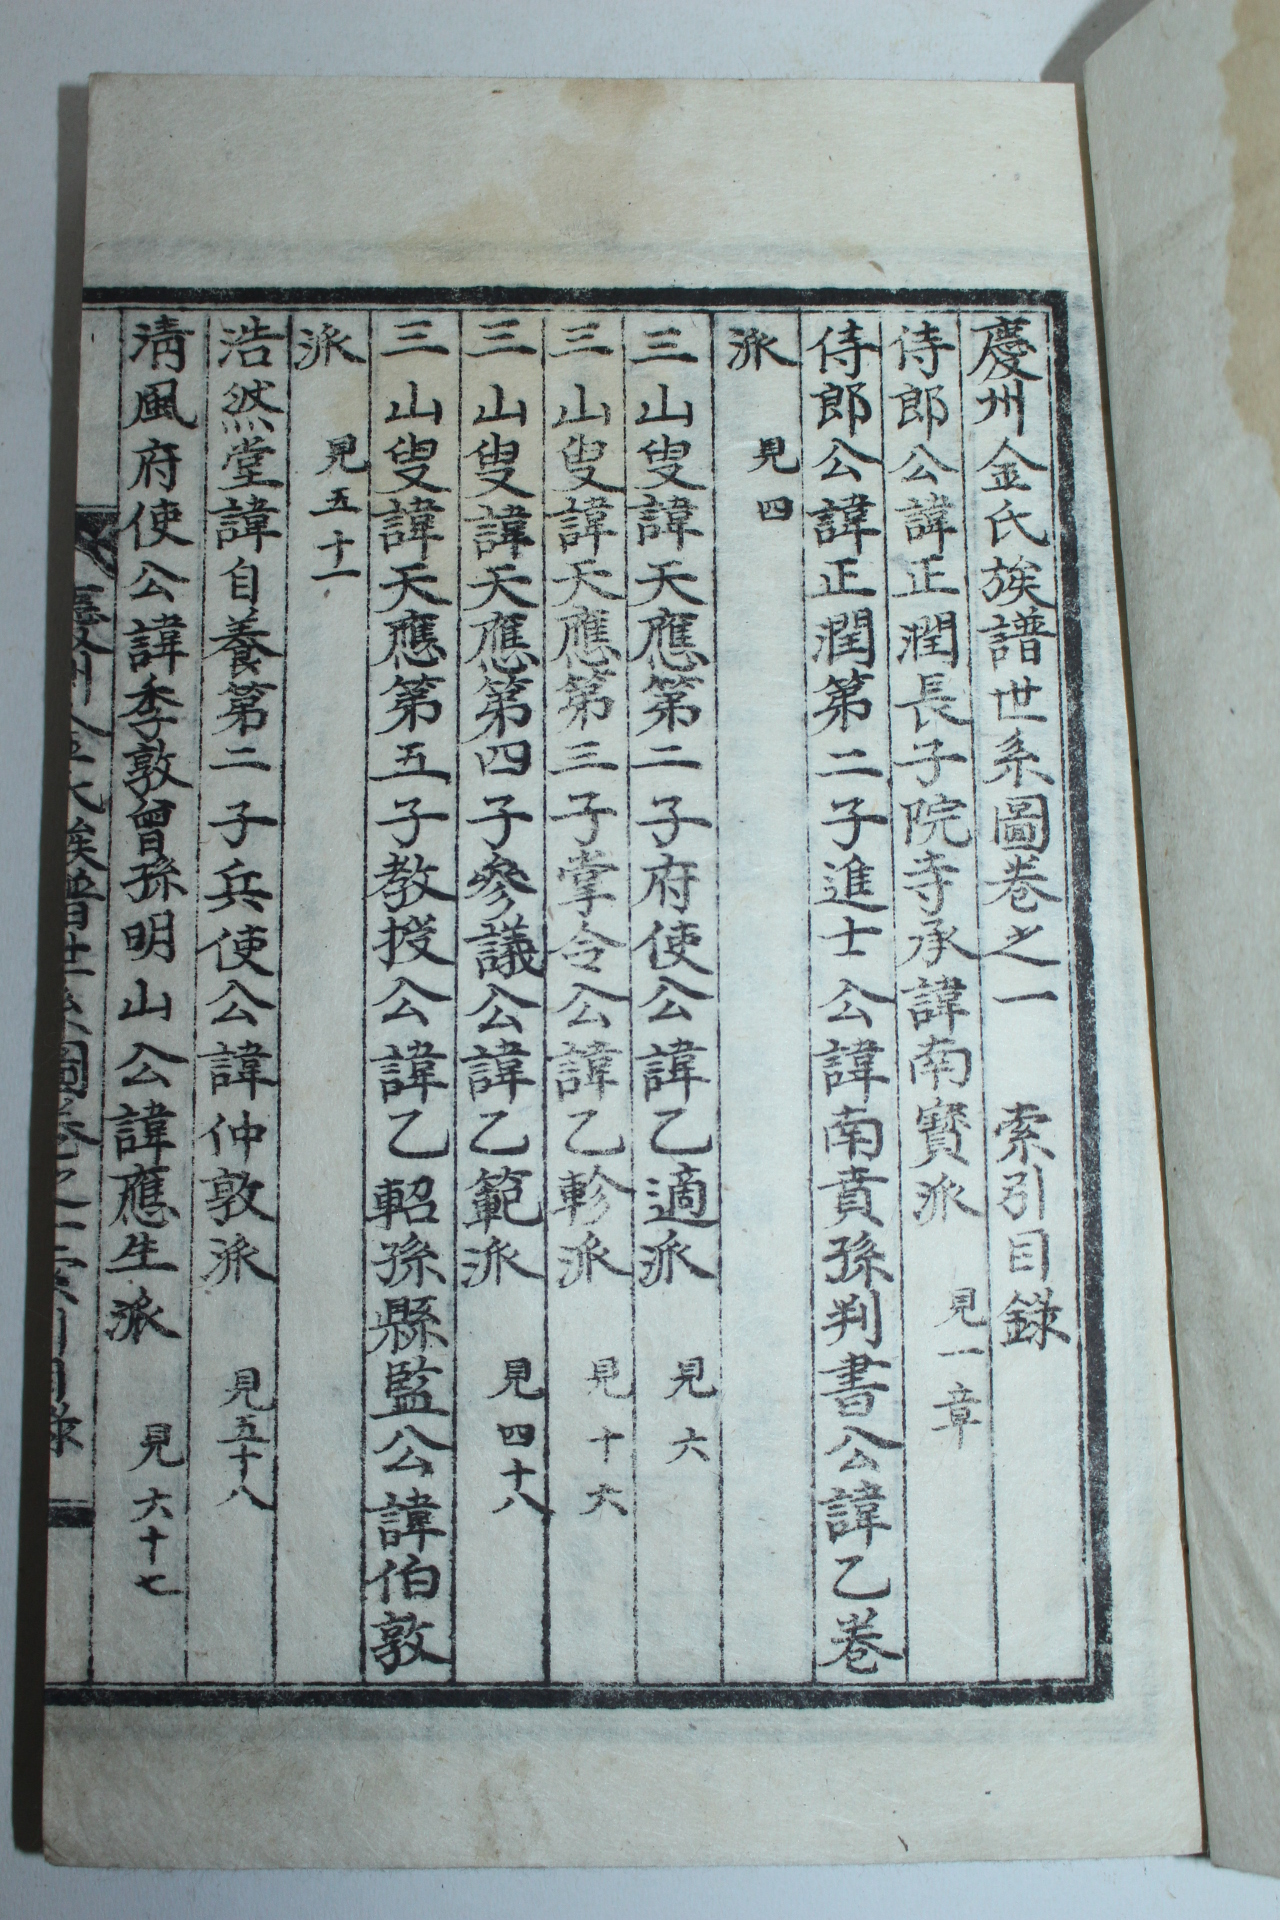 慶州金氏族譜世系圖卷之一 索引目錄
侍郎公諱正潤長子院寺承諱南寶派 見一章
侍郎公諱正潤第二子進士公諱南賁孫判書公諱乙卷
派 見四
三山叟諱天應第二子府使公諱乙適派 見六
三山叟諱天應第三子掌令公諱乙軫派 見十六
三山叟諱天應第四子參議公諱乙範派 見四十八
三山叟諱天應第五子教授公諱乙軺孫縣監公諱伯敦
派 見五十一
浩然堂諱自養第二子兵使公諱仲敦派 見五十八
清風府使公諱季敦曾孫明山公諱應生派 見六十七
慶州金氏族譜世系圖卷之一 索引目錄